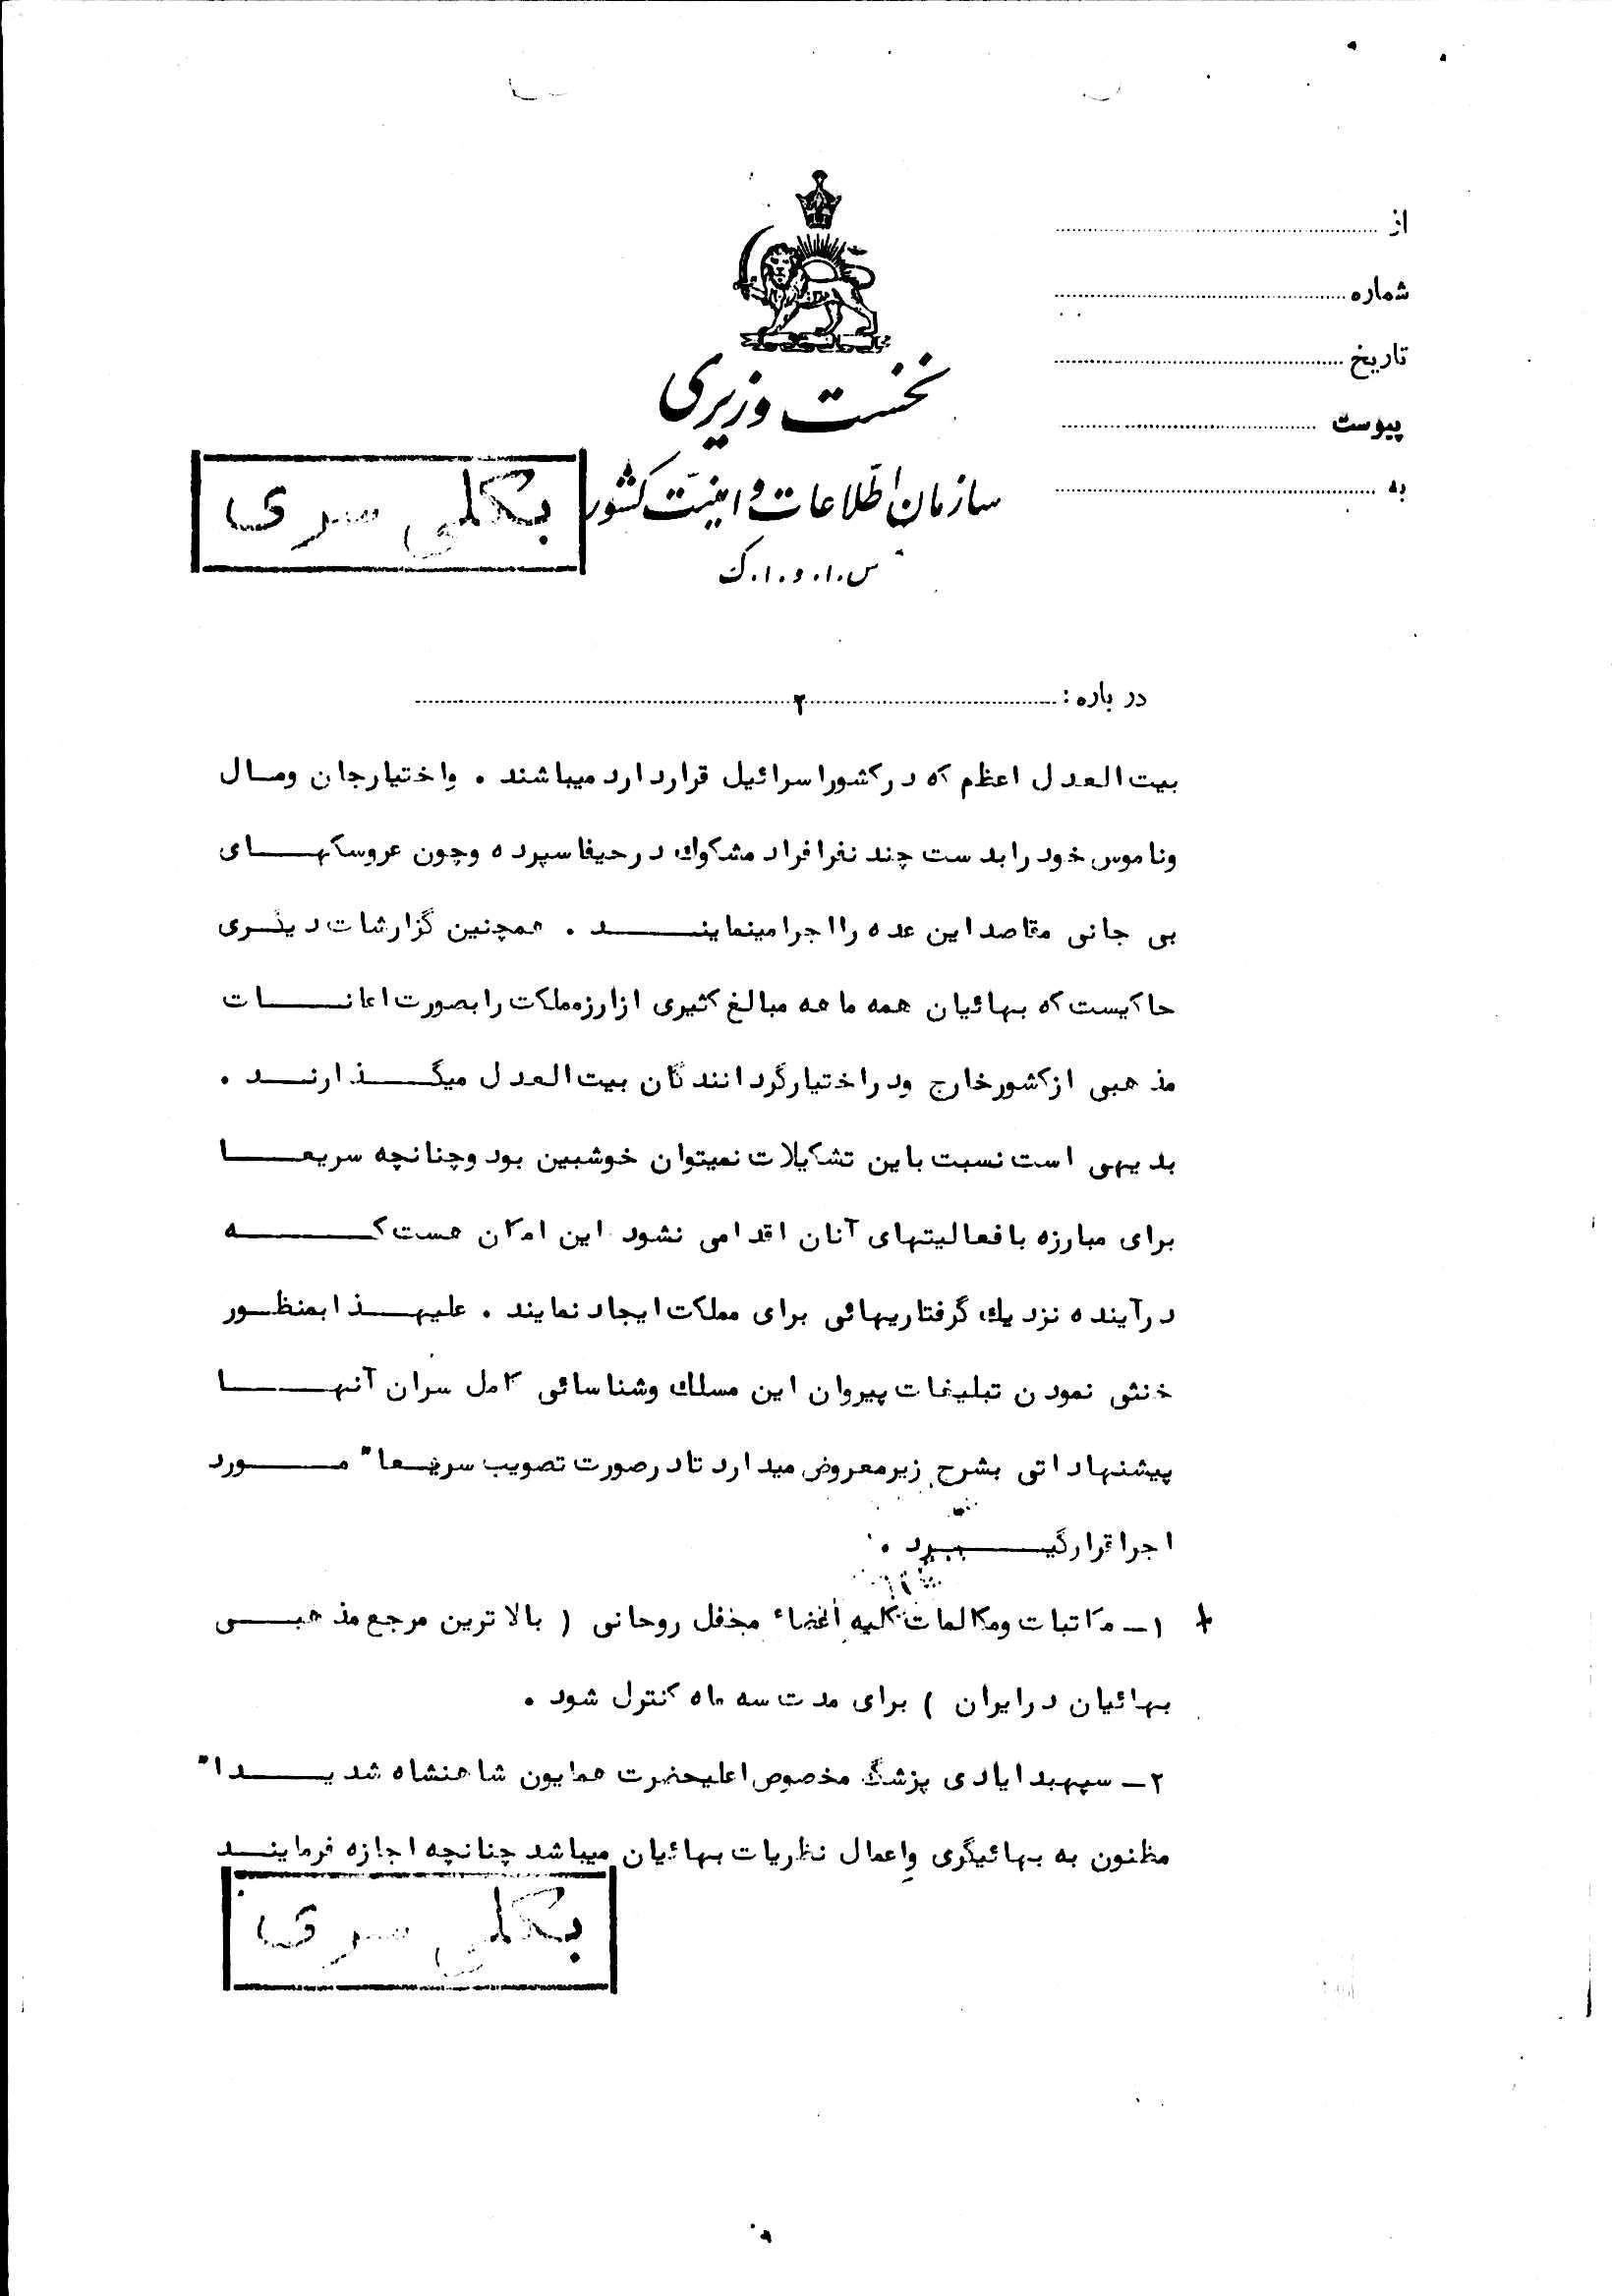 از
شماره
تاریخ
پیوست
به
نخست وزیری
سازمان اطلاعات و امنیت کشور
س.ا.و.ا.ک
بکلی سری
در باره: ۲
بیت العدل اعظم که در کشور اسرائیل قرار دارد میباشند . و اختیار جان ومال
وناموس خود را بدست چند نفر افراد مشکوک در حیفا سپرده وچون عروسکهای
بی جانی مقاصد این عده را اجرا مینمایند . همچنین گزارشات دیگری
حاکیست که بهائیان همه ماهه مبالغ کثیری از ارز مملکت را بصورت اعانات
مذهبی از کشور خارج ودر اختیار گردانندگان بیت العدل میگذارند .
بدیهی است نسبت باین تشکیلات نمیتوان خوشبین بود وچنانچه سریعا
برای مبارزه با فعالیتهای آنان اقدامی نشود این امکان هست که
در آینده نزدیک گرفتاریهائی برای مملکت ایجاد نمایند . علیهذا بمنظور
خنثی نمودن تبلیغات پیروان این مسلک وشناسائی کامل سران آنها
پیشنهاداتی بشرح زیر معروض میدارد تا در صورت تصویب سریعا" مورد
اجرا قرار گیرد .
۱- مکاتبات ومکالمات کلیه اعضاء محفل روحانی ( بالاترین مرجع مذهبی
بهائیان در ایران ) برای مدت سه ماه کنترل شود .
۲- سپهبد ایادی پزشک مخصوص اعلیحضرت همایون شاهنشاه شدیدا"
مظنون به بهائیگری و اعمال نظریات بهائیان میباشد چنانچه اجازه فرمایند
بکلی سری